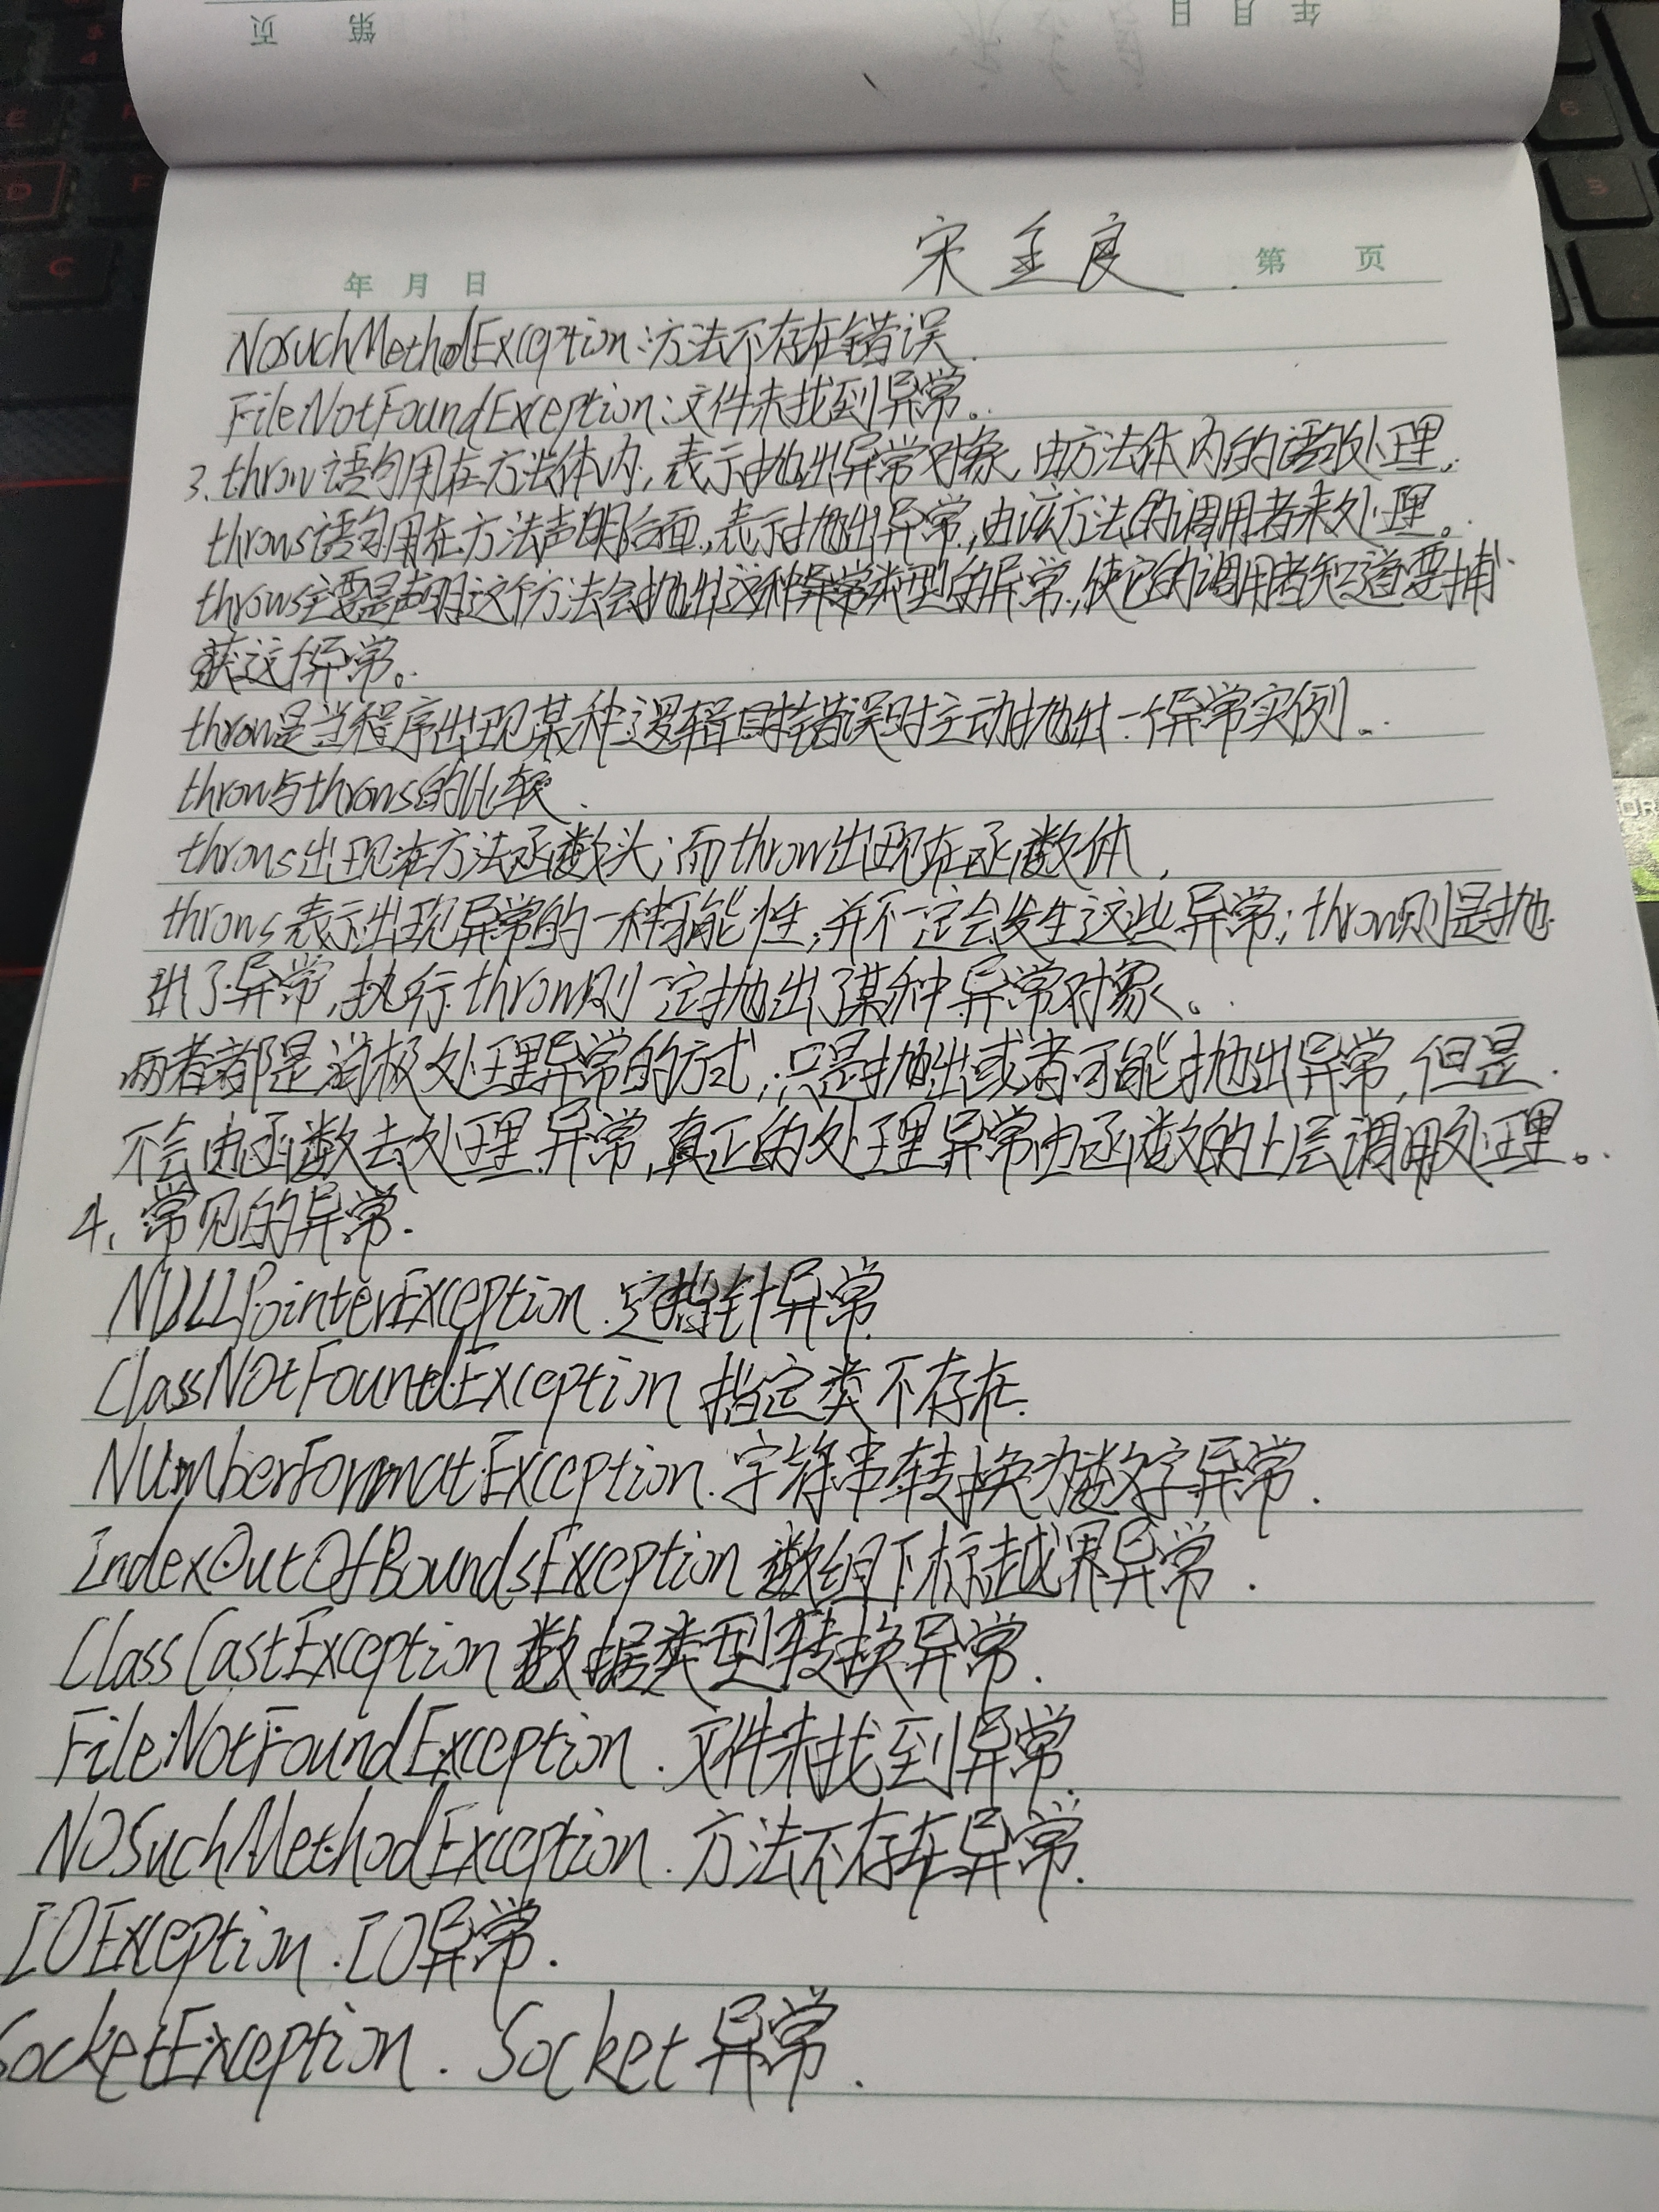 第 页
年 月 日
宋金良
年 月 日 第 页
NosuchMethodException:方法不存在错误.
FileNotFoundException:文件未找到异常。
3.throw语句用在方法体内,表示抛出异常对象,由方法体内的语句处理.
throws语句用在方法声明后面,表示抛出异常,由该方法的调用者来处理。
throws主要是声明这个方法会抛出这种异常类型的异常,使它的调用者知道要捕
获这个异常。
throw是当程序出现某种逻辑错误时主动抛出一个异常实例.
throw与throws的比较.
throws出现在方法函数头;而throw出现在函数体.
throws表示出现异常的一种可能性,并不一定会发生这些异常;throw则是抛
出了异常,执行throw则一定抛出了某种异常对象。
两者都是消极处理异常的方式,只是抛出或者可能抛出异常,但是
不会由函数去处理异常,真正的处理异常由函数的上层调用处理。
4.常见的异常.
NULLPointerException.空指针异常.
ClassNotFoundException 指定类不存在.
NumberFormatException.字符串转换为数字异常.
IndexOutOfBoundsException 数组下标越界异常.
ClassCastException 数据类型转换异常.
FileNotFoundException.文件未找到异常.
NOSuchMethodException.方法不存在异常.
IOException.IO异常.
SocketException.Socket异常.